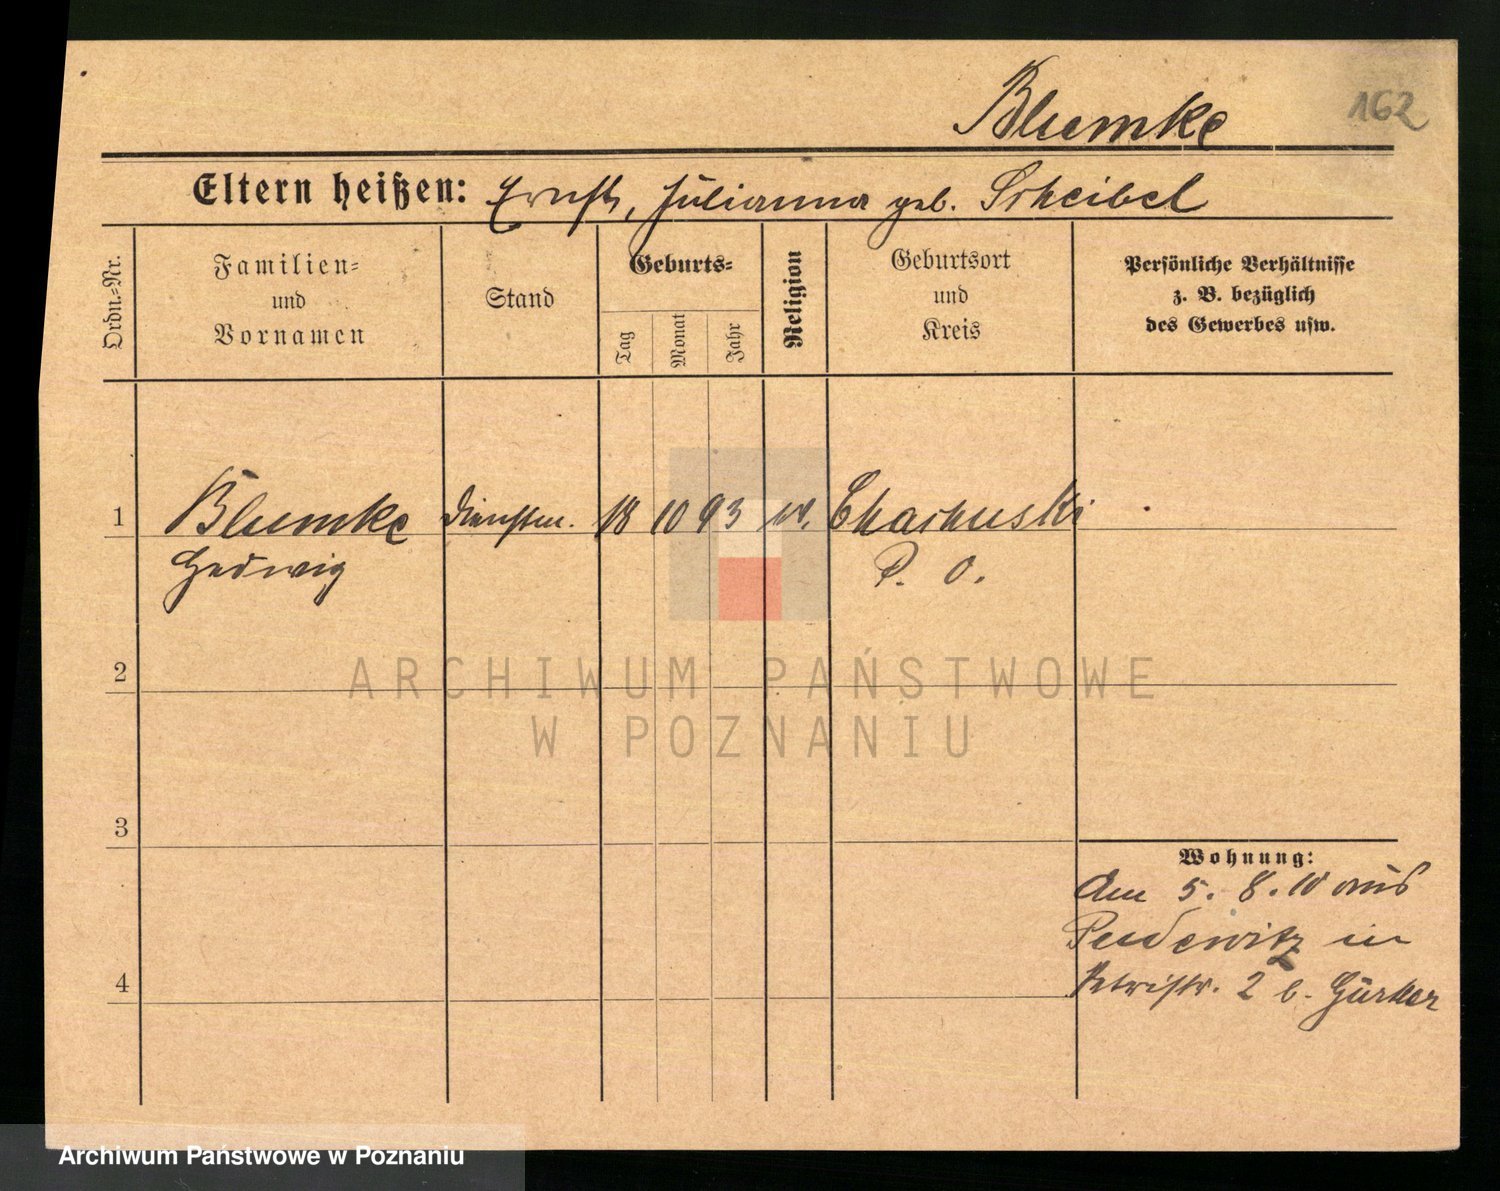 Blumke
162
Eltern heißen: Ernst, Julianna geb. Scheibel
Ordn.-Nr.
Familien-
und
Vornamen
Stand
Geburts-
Tag
Monat
Jahr
Religion
Geburtsort
und
Kreis
Persönliche Verhältnisse
z. B. bezüglich
des Gewerbes usw.
1 Blumke Dienstm. 18 10 93
Hedwig P. O.
2
3
4
Wohnung:
Am 5. 8. 10 aus
Pudewitz in
Petristr. 2 b.
ARCHIWUM PAŃSTWOWE
W POZNANIU
Archiwum Państwowe w Poznaniu